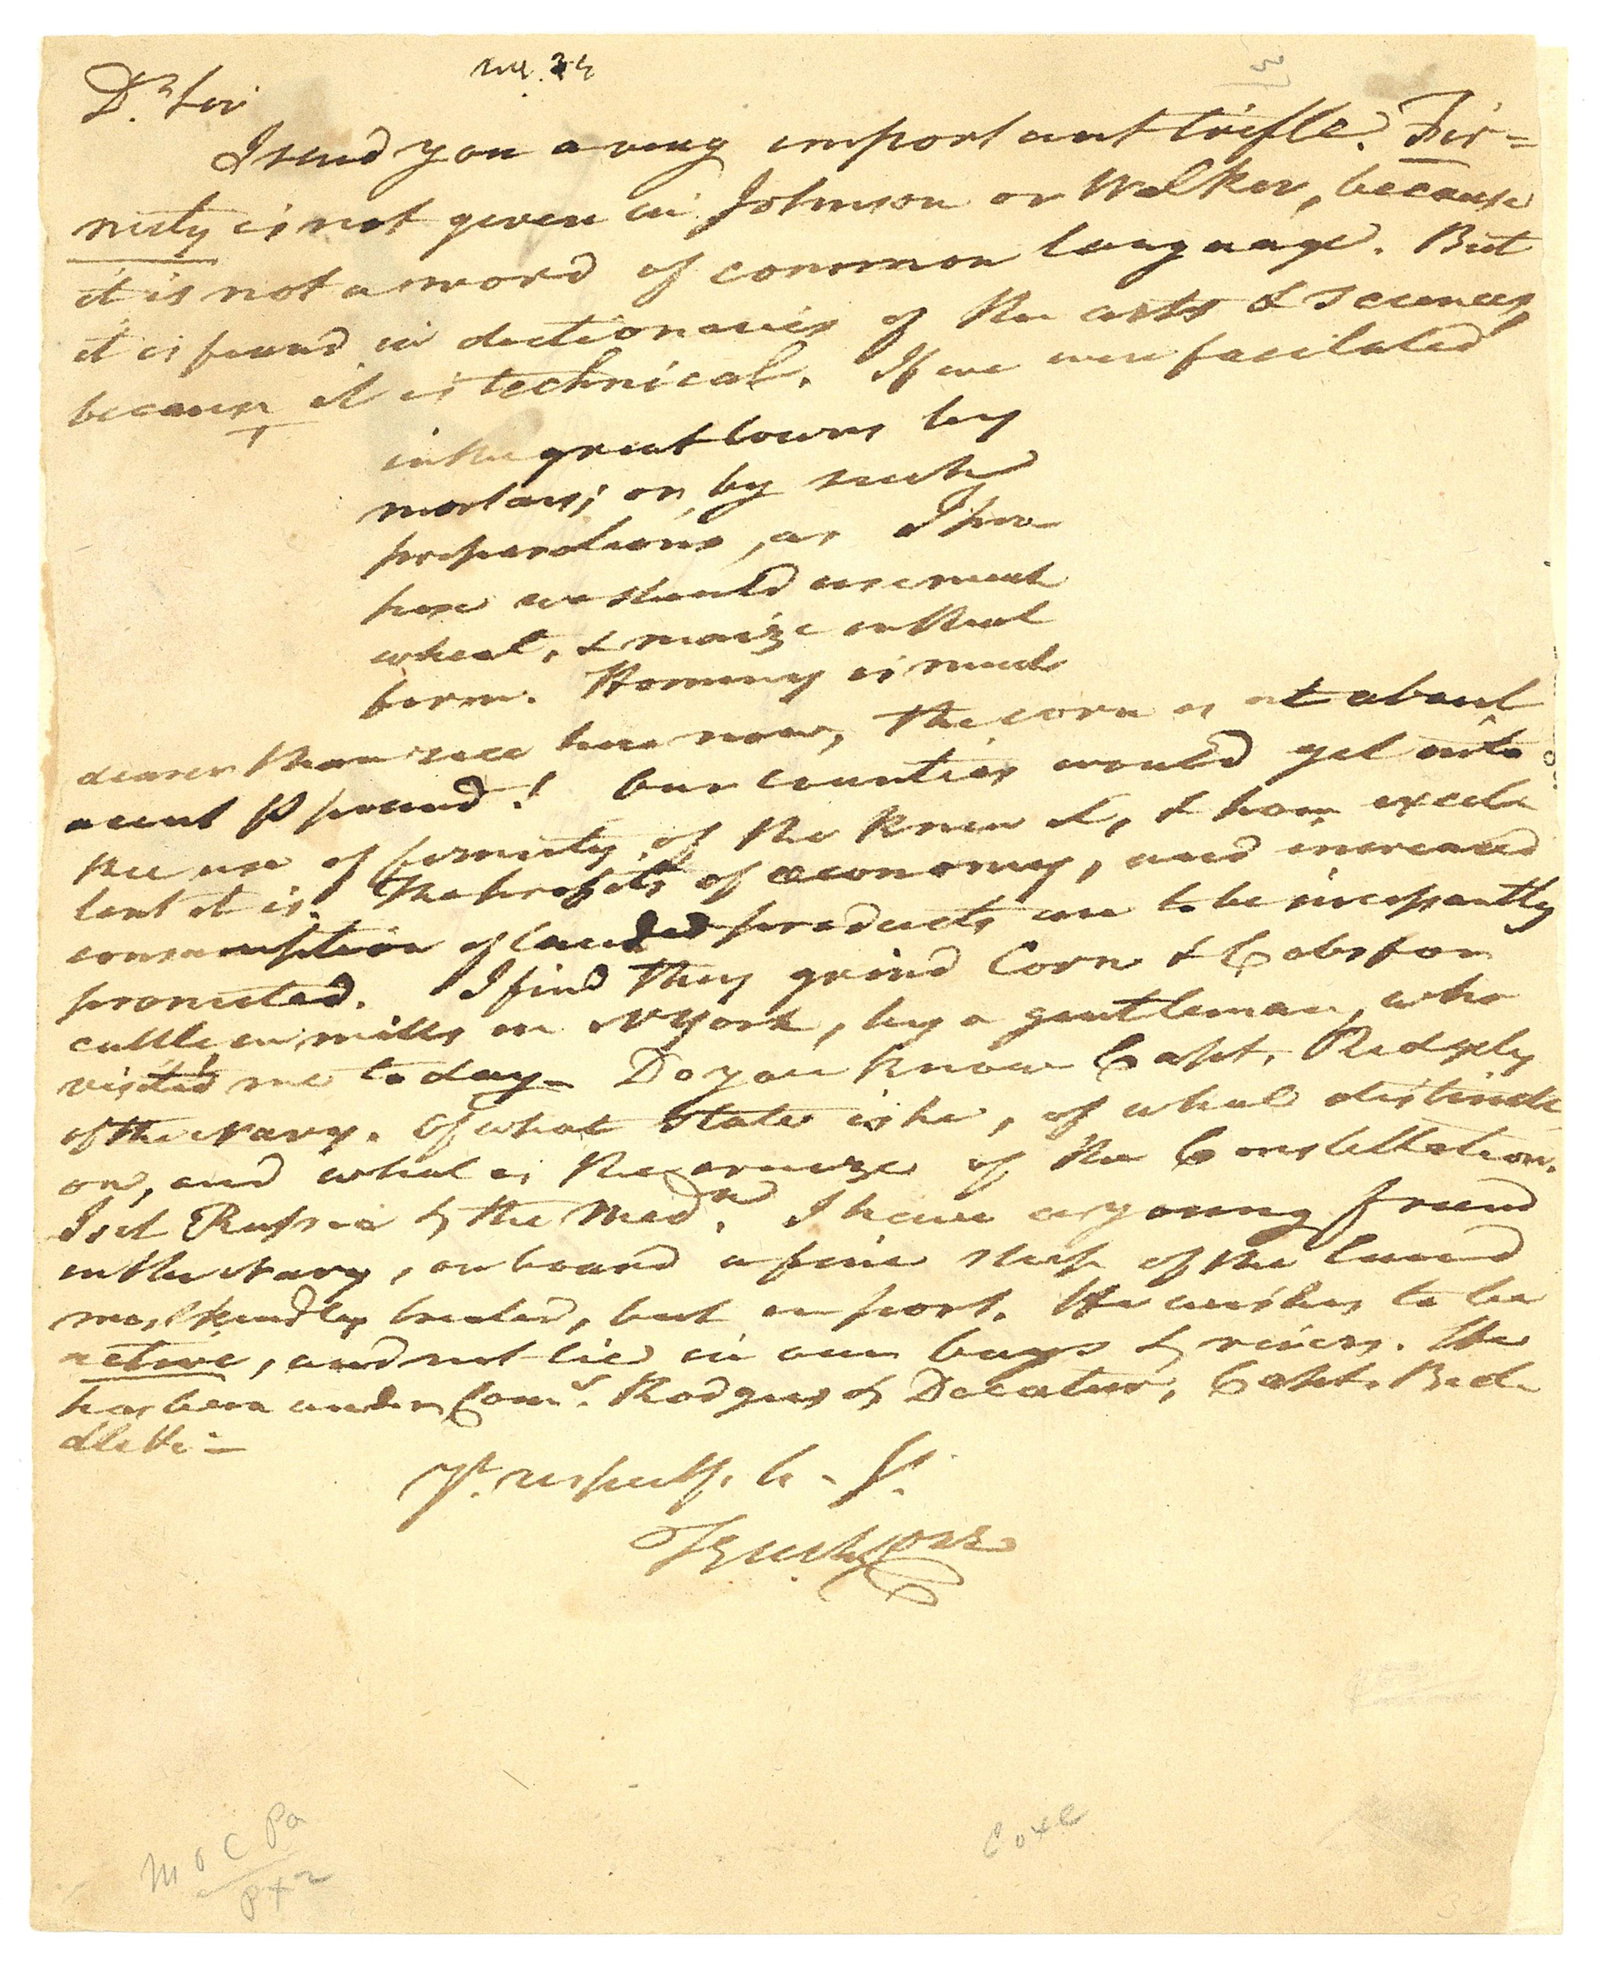 Dr. Sir
I send you a very important trifle. Fir=
mity is not given in Johnson or Walker, because
it is not a word of common language. But
it is found in dictionaries of the arts & sciences,
because it is technical. If we were facilitated
in the great towns by
mortars; or by such
preparations, as I pro-
pose we should use much
wheat, & maize in that
form. Hominy is much
dearer than rice here now, the corn is at about
a cent P pound! Our counties would get into
the use of firmity, if the knew it, & how excel
lent it is. The profits of œconomy, and increased
consumption of landed products are to be incessantly
promoted. I find they grind Corn & Cobs for
cattle in mills in NYork, by a gentleman, who
visited me to day— Do you know Capt. Ridgely
of the Navy. Of what State is he, of what distincti
on, and what is the cruize of the Constellation.
Is it Russia or the Medn. I have a young friend
in the Navy, on board a fine ship of the line
most kindly treated, but in port. He wishes to be
active, and not lie in our bays or rivers. He
has been under Comrs. Rodgers & Decatur, Capt. Bid
dle &c—
Yr. respectf. h. St.
Tench Coxe
M O C Pa
P X 2
Coxe